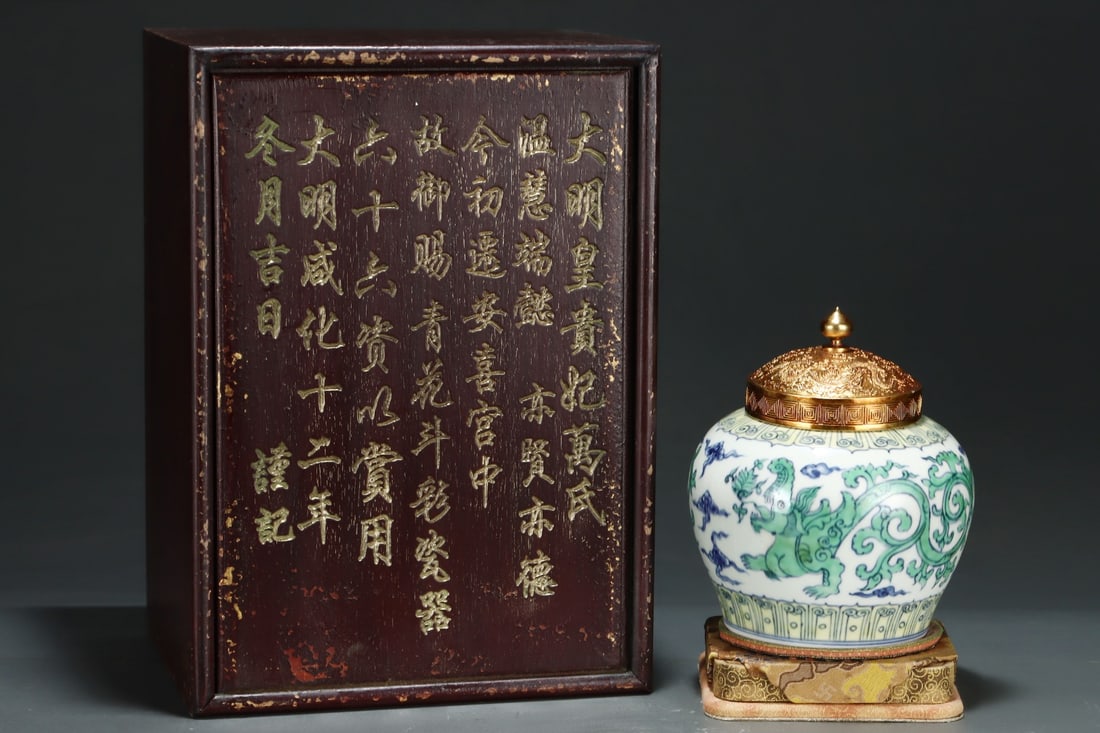 大明皇貴妃萬氏
溫慧端懿 亦賢亦德
今初遷安喜宮中
故御賜青花斗彩瓷器
六十六资以賞用
大明咸化十二年
冬月吉日 謹記